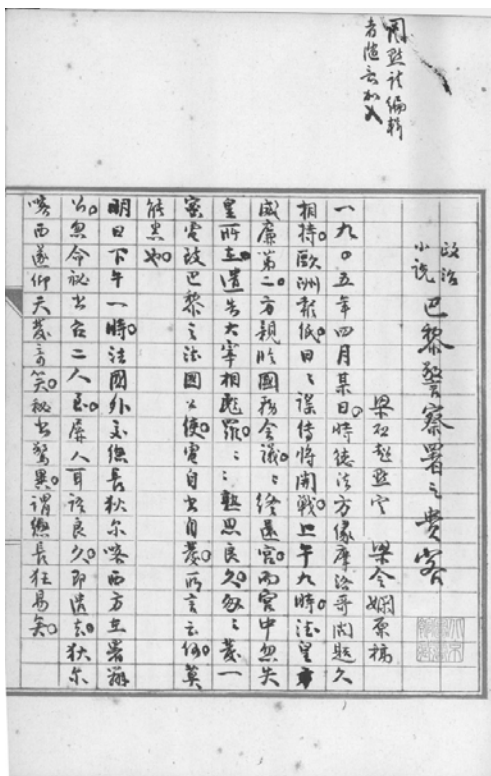 圈點請編輯
者隨意加入
政治
小說
巴黎警察署之貴客
梁啟超點定 梁令嫻原稿
一九〇五年四月某日。時德法方緣摩洛哥問題久
相持。歐洲報紙。日日謀傳將開戰。上午九時。德皇
威廉第二。方親臨國務會議。議終還宮。而宮中忽失
皇所在。遣告大宰相彪羅。羅熟思良久。匆匆發一
密電致巴黎之法國公使。電自書自發。所言云何。莫
能悉也。
明日下午一時。法國外交總長狄尔喀西方在署辦
公。忽令秘書召二人至。屏人耳語良久。即遣去。狄尔
喀西遂仰天發奇笑。秘書驚異。謂總長狂易矣。